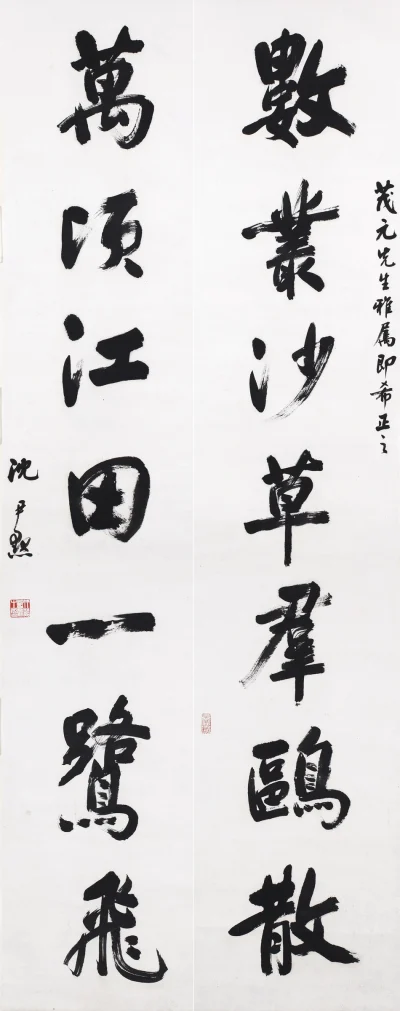 茂元先生雅屬即希正之
數叢沙草羣鷗散
萬頃江田一鷺飛
沈尹默